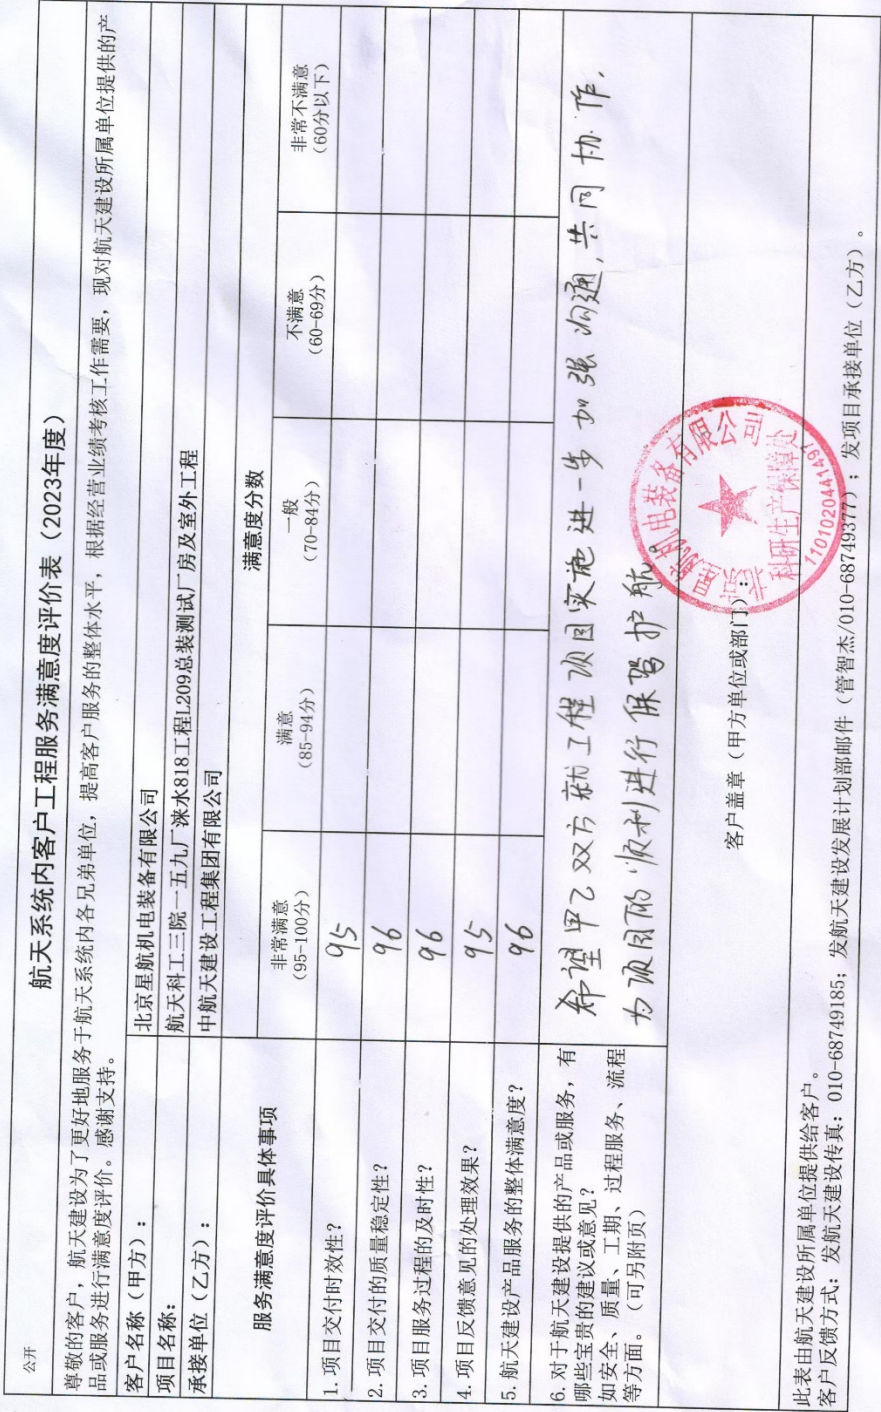 公开
航天系统内客户工程服务满意度评价表（2023年度）
尊敬的客户，航天建设为了更好地服务于航天系统内各兄弟单位，提高客户服务的整体水平，根据经营业绩考核工作需要，现对航天建设所属单位提供的产
品或服务进行满意度评价。感谢支持。
客户名称（甲方）： 北京星航机电装备有限公司
项目名称： 航天科工三院一五九厂涞水818工程L209总装测试厂房及室外工程
承接单位（乙方）： 中航天建设工程集团有限公司
服务满意度评价具体事项 满意度分数
非常满意 满意 一般 不满意 非常不满意
（95-100分） （85-94分） （70-84分） （60-69分） （60分以下）
1. 项目交付时效性？ 95
2. 项目交付的质量稳定性？ 96
3. 项目服务过程的及时性？ 96
4. 项目反馈意见的处理效果？ 95
5. 航天建设产品服务的整体满意度？ 96
6. 对于航天建设提供的产品或服务，有
哪些宝贵的建议或意见？
如安全、质量、工期、过程服务、流程
等方面。（可另附页）
希望甲乙双方就工程项目实施进一步加强沟通,共同协作,
为项目的顺利进行保驾护航。
客户盖章（甲方单位或部门）：
北京星航机电装备有限公司
科研生产保障处
此表由航天建设所属单位提供给客户。
客户反馈方式：发航天建设传真：010-68749185；发航天建设发展计划部邮件（管智杰/010-68749377）；发项目承接单位（乙方）。